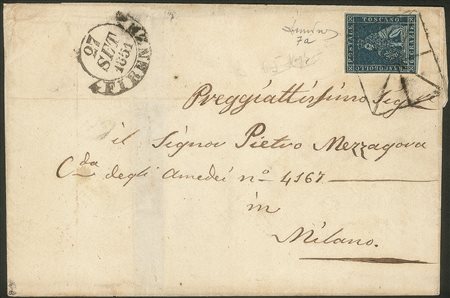 27
SET
1851
FIRENZE
7a
FRANCOBOLLO
POSTALE
TOSCANO
Preggiattissimo Sigre
il Signor Pietro Mezzagora
Cda degli Amedei no 4167
in
Milano.